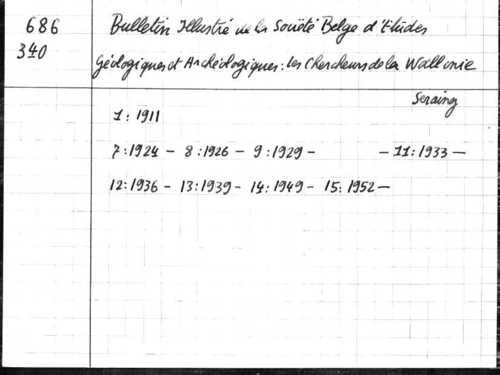 686 Bulletin Illustré de la Société Belge d'Etudes
340 Géologiques et Archéologiques : Les Chercheurs de la Wallonie
Seraing
1 : 1911
7 : 1924 - 8 : 1926 - 9 : 1929 - - 11 : 1933 -
12 : 1936 - 13 : 1939 - 14 : 1949 - 15 : 1952 -